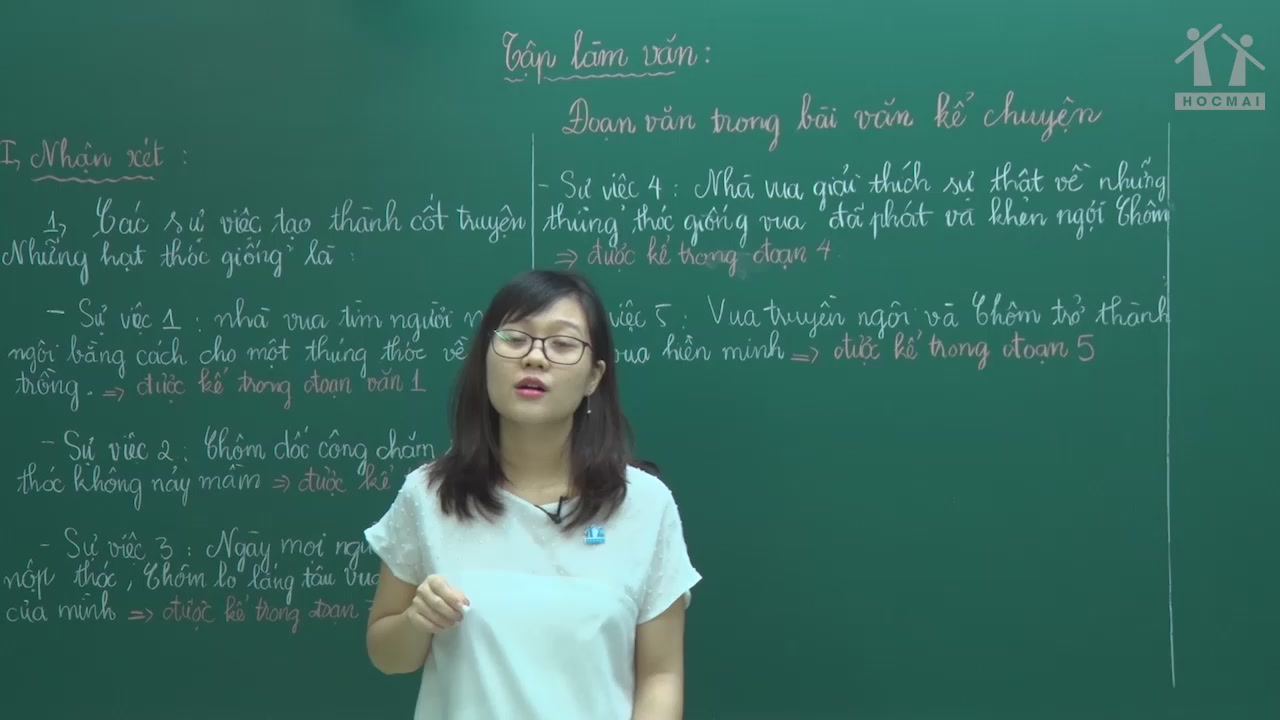 Tập làm văn:
Đoạn văn trong bài văn kể chuyện
I, Nhận xét :
1, Các sự việc tạo thành cốt truyện
Những hạt thóc giống là :
- Sự việc 1 : nhà vua tìm người
ngôi bằng cách cho một thúng thóc về
trồng. => được kể trong đoạn văn 1
- Sự việc 2 : Chôm dốc công chăm
thóc không nảy mầm => được kể
- Sự việc 3 : Ngày mọi
nộp thóc, Chôm lo lắng tâu
của mình => được kể trong đoạn
- Sự việc 4 : Nhà vua giải thích sự thật về những
thúng thóc giống vua đã phát và khen ngợi Chôm
=> được kể trong đoạn 4.
việc 5 : Vua truyền ngôi và Chôm trở thành
vua hiền minh => được kể trong đoạn 5
HOCMAI